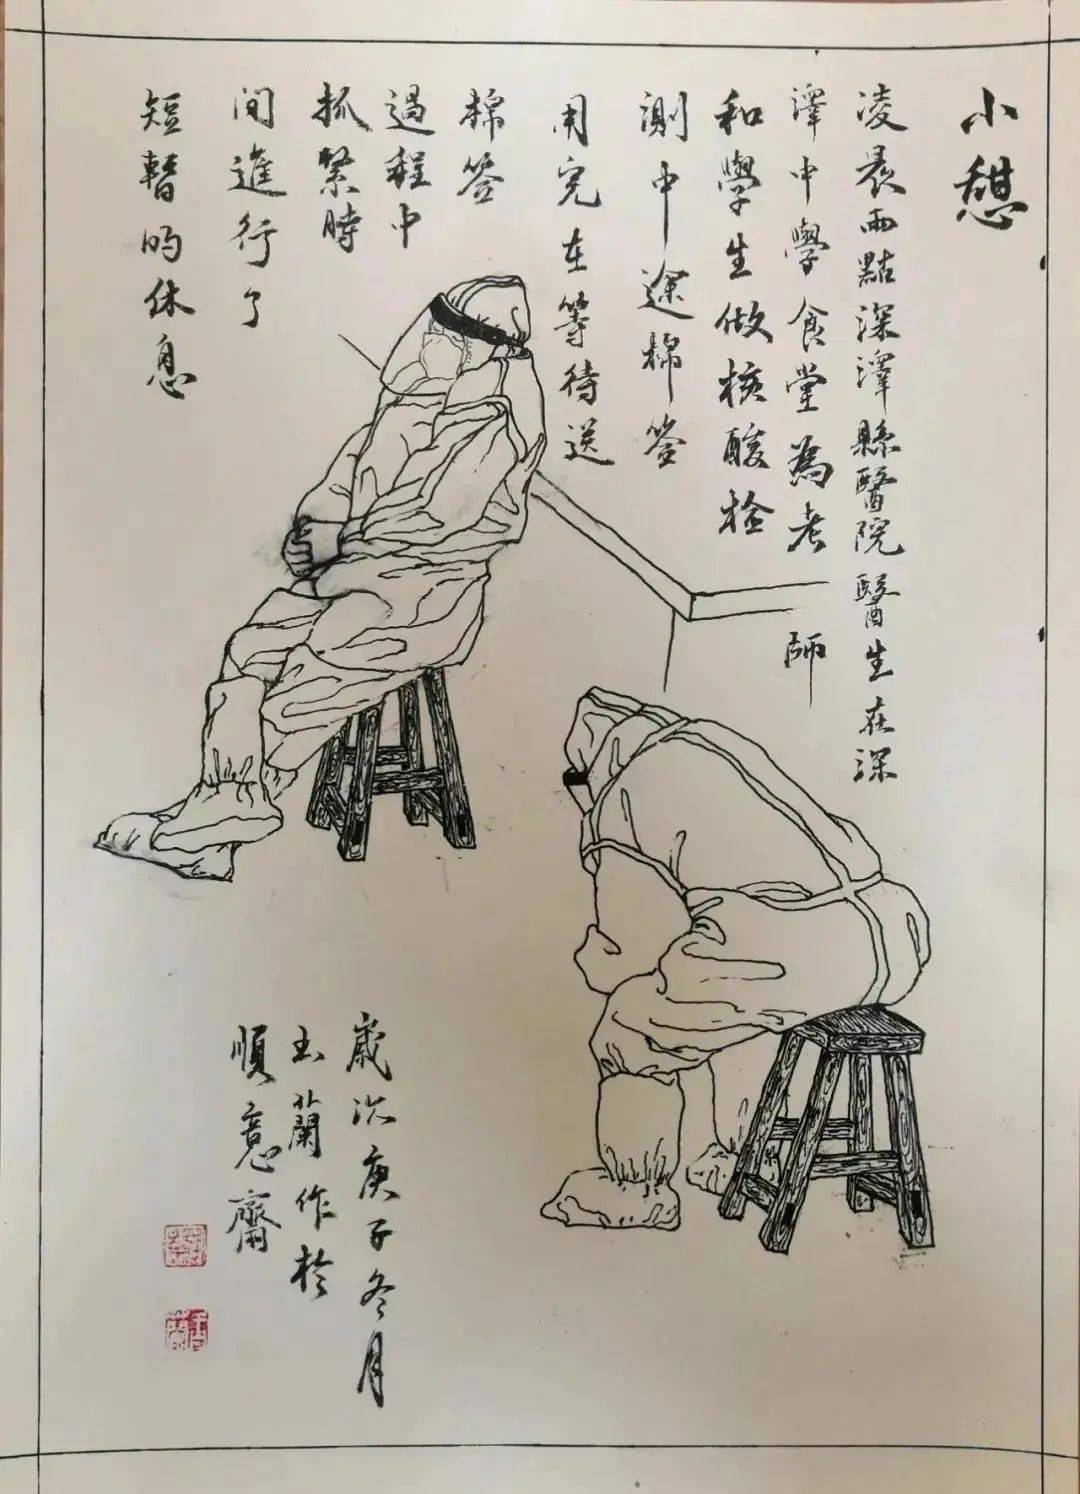 小憩
凌晨兩點深澤縣醫院醫生在深
澤中學食堂為老師
和學生做核酸检
測中途棉签
用完在等待送
棉签
過程中
抓緊時
间進行了
短暫的休息
歲次庚子冬月
玉蘭作於
順意齋